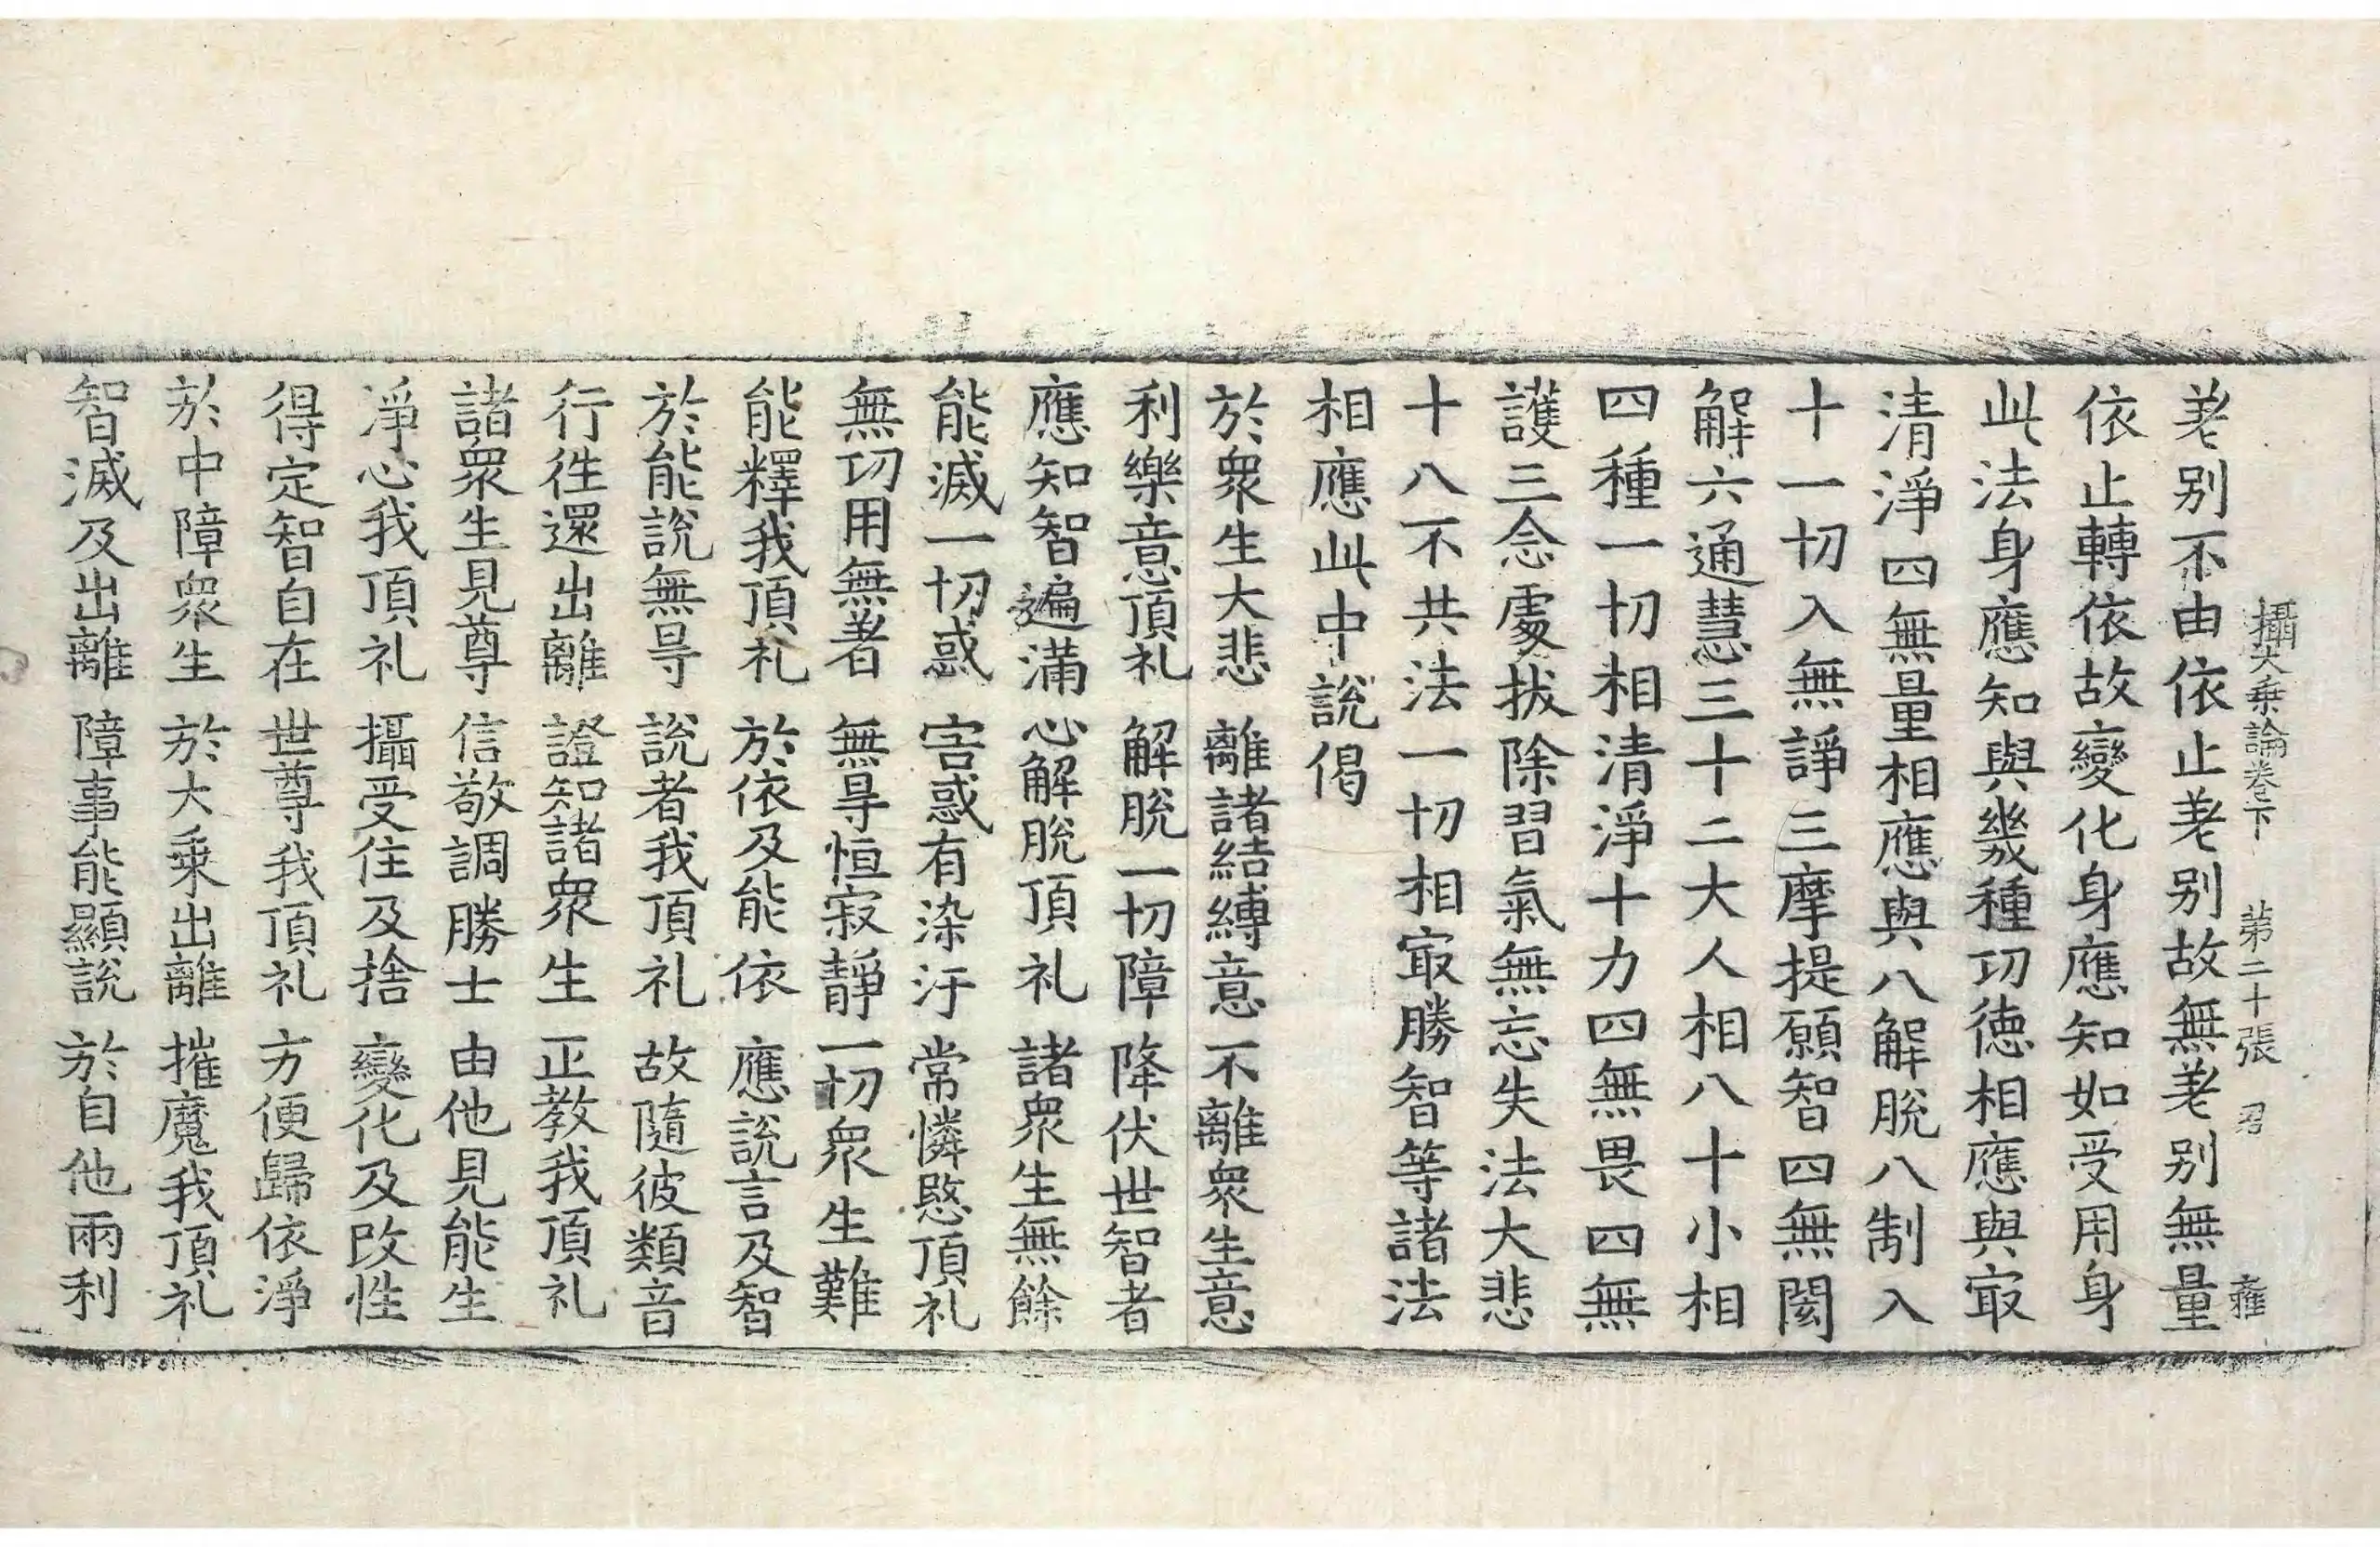 攝大乗論卷下 第二十張 君 雍
差别不由依止差别故無差别無量
依止轉依故變化身應知如受用身
此法身應知與幾種功徳相應與㝡
清淨四無量相應與八解脫八制入
十一切入無諍三摩提願智四無閡
解六通慧三十二大人相八十小相
四種一切相清淨十力四無畏四無
護三念處拔除習氣無忘失法大悲
十八不共法一切相㝡勝智等諸法
相應此中說偈
於衆生大悲 離諸結縛意 不離衆生意
利樂意頂礼 解脫一切障 降伏世智者
應知智遍滿 心解脫頂礼 諸衆生無餘
能滅一切惑 害惑有染汙 常憐愍頂礼
無功用無著 無㝵恒寂靜 一切衆生難
能釋我頂礼 於依及能依 應說言及智
於能說無㝵 說者我頂礼 故隨彼類音
行徃還出離 證知諸衆生 正教我頂礼
諸衆生見尊 信敬調勝士 由他見能生
淨心我頂礼 攝受住及捨 變化及改性
得定智自在 世尊我頂礼 方便歸依淨
於中障衆生 於大乗出離 摧魔我頂礼
智滅及出離 障事能顯說 於自他兩利